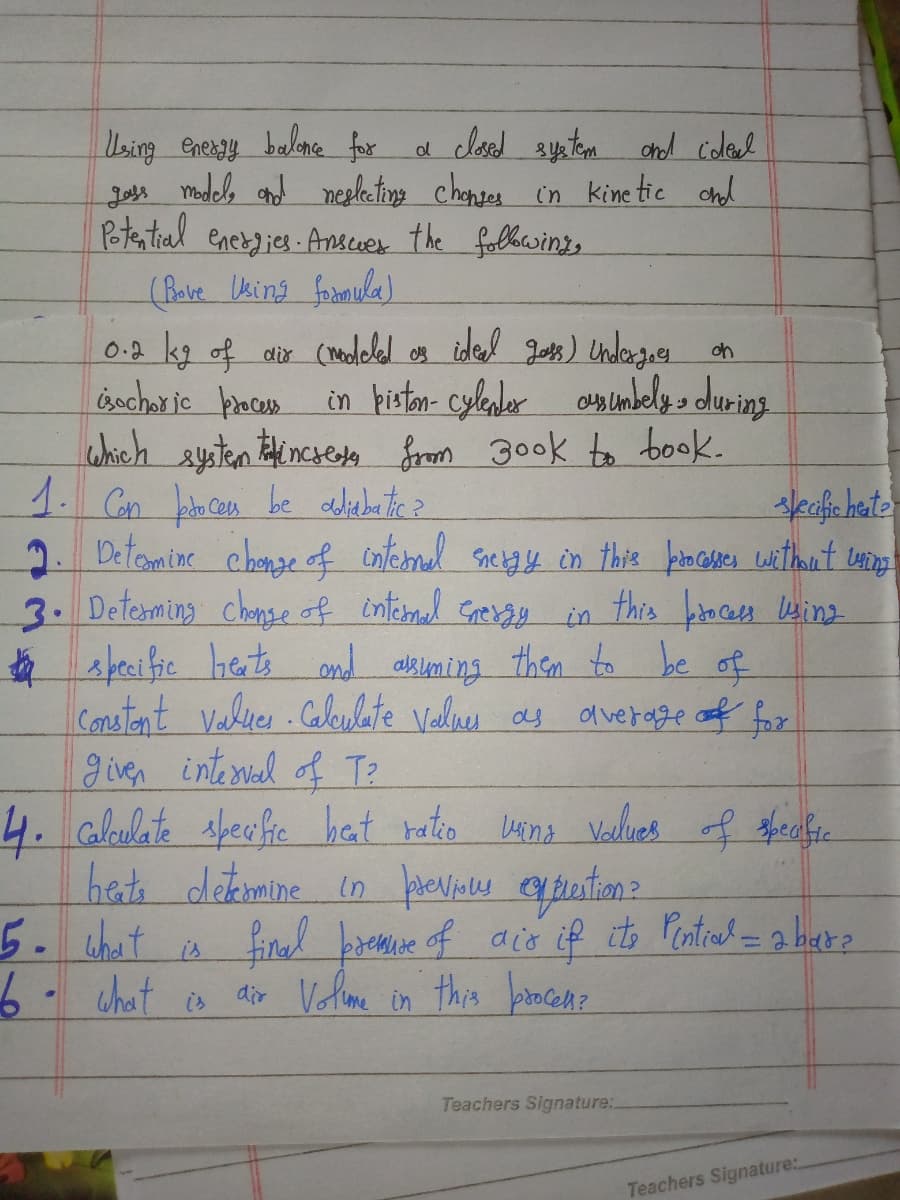 Using energy balance for a closed system and ideal
gass models and neglecting changes in kinetic and
Potential energies. Answer the following,
(Prove Using formula)
0.2 kg of air (modeled as ideal gass) Undergoes on
isochoric process in piston-cylender assumbely, during
which system increases from 300k to 600k.
1. Can process be adiabatic?
specific heat?
2. Determine change of internal energy in this processes without using
3. Determing change of internal Energy in this process using
specific heats and assuming them to be of
Constant values. Calculate Values as average for
given interval of T?
4. Calculate specific heat ratio Using Values of specific
heats determine in previous question?
5. What is final pressure of air if its Pintial = 2 bar?
6. What is air Volume in this process?
Teachers Signature:
Teachers Signature: